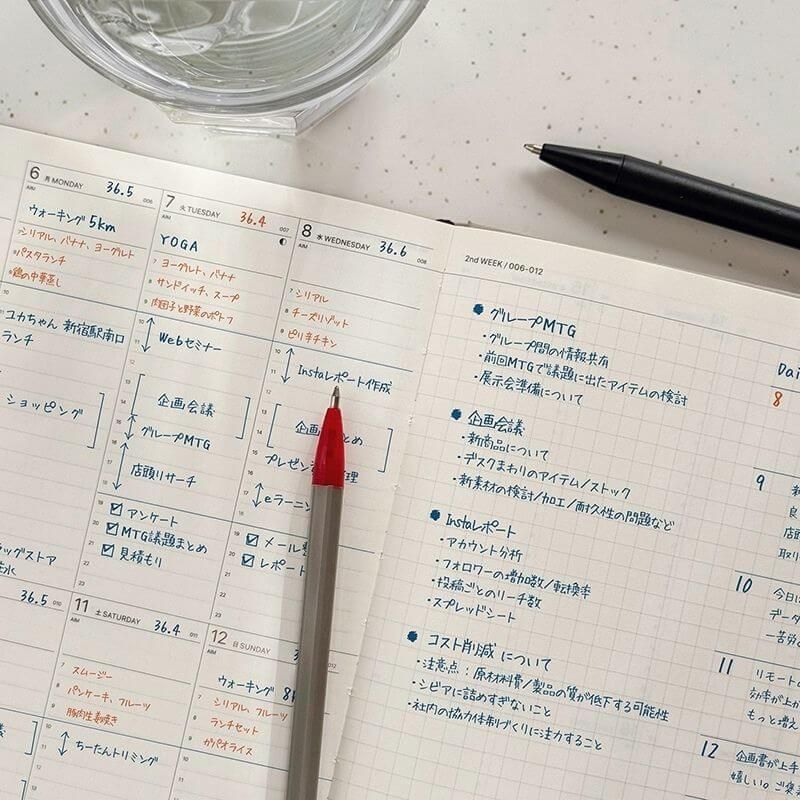 6 月 MONDAY 36.5 006
AIM
ウォーキング 5km
シリアル、バナナ、ヨーグルト
パスタランチ
鶏の中華蒸し
10
ユカちゃん 新宿駅南口
ランチ
ショッピング
7 火 TUESDAY 36.4 007
AIM
YOGA
7 ヨーグルト、バナナ
8 サンドイッチ、スープ
9 肉団子と野菜のポトフ
10
11 Webセミナー
12
13
14 企画会議
15
16 グループMTG
17
18 店頭リサーチ
19 アンケート
20 MTG議題まとめ
21 見積もり
22
23
8 水 WEDNESDAY 36.6 008
AIM
7 シリアル
8 チーズリゾット
9 ピリ辛チキン
10
11 Instaレポート作成
12
企画 まとめ
プレゼン 理
eラーニン
18
19 メール
20 レポート
21
22
23
ラッグストア
36.5 010
11 土 SATURDAY 36.4 011
AIM
7 スムージー
8 パンケーキ、フルーツ
9 豚肉生姜焼き
10
11 ちーたんトリミング
12
12 日 SUNDAY 012
AIM
ウォーキング
7 シリアル、フルーツ
8 ランチセット
9 ガパオライス
10
11
12
2nd WEEK / 006-012
グループMTG
・グループ間の情報共有
・前回MTGで議題に出たアイテムの検討
・展示会準備について
企画会議
・新商品について
・デスクまわりのアイテム/ストック
・新素材の検討/加工/耐久性の問題など
Instaレポート
・アカウント分析
・フォロワーの増加数/転換率
・投稿ごとのリーチ数
・スプレッドシート
コスト削減 について
・注意点:原材料費/製品の質が低下する可能性
・シビアに詰めすぎないこと
・社内の協力体制づくりに注力すること
Dai
8
9 新
良
店頭
取り
10 今日に
データ
一苦労の
11 リモート
効率が上が
もっと増え
12 企画書が上手
嬉しい。ご褒